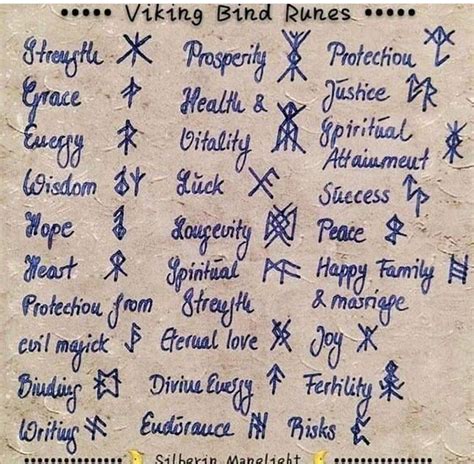 Viking Bind Runes
Strength
Grace
Energy
Wisdom
Hope
Heart
Protection from
evil magick
Binding
Writing
Prosperity
Health &
Vitality
Luck
Longevity
Spiritual
Strength
Eternal love
Divine Energy
Endurance
Protection
Justice
Spiritual
Attainment
Success
Peace
Happy Family
& marriage
Joy
Fertility
Risks
Silberin Manelight